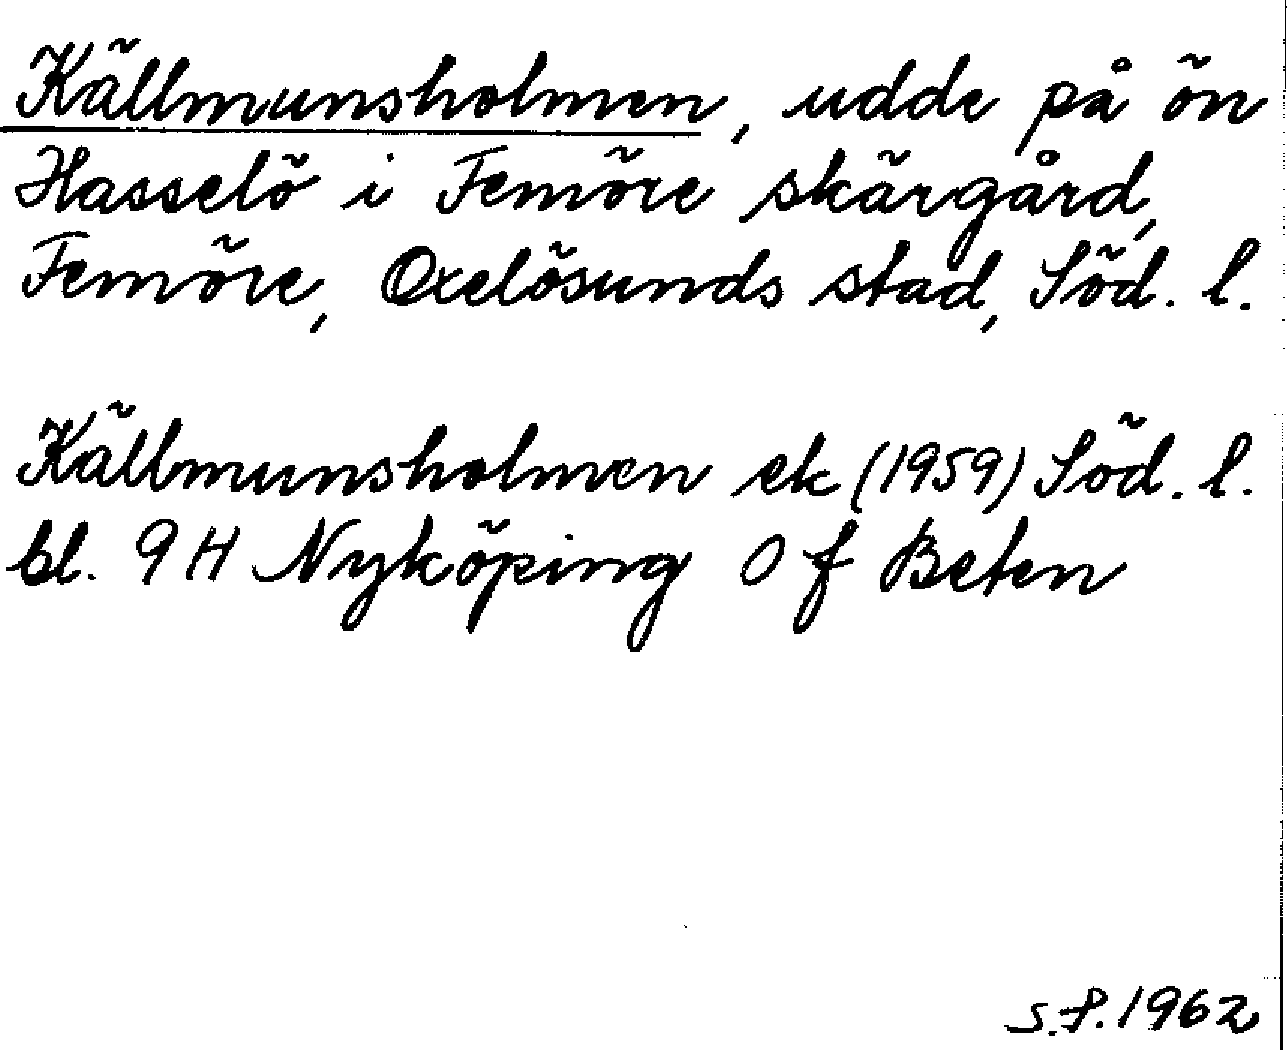 Källmunsholmen, udde på ön
Hasselö i Femöre skärgård,
Femöre, Oxelösunds stad, Söd. l.
Källmunsholmen ek (1959) Söd. l.
bl. 9 H Nyköping O f Beten
S.P. 1962